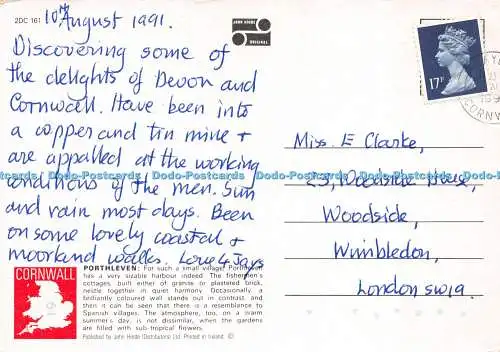 2DC 161
10th August 1991.
Discovering some of
the delights of Devon and
Cornwall. Have been into
a copper and tin mine +
are appalled at the working
conditions of the men. Sun
and rain most days. Been
on some lovely coastal +
moorland walks. Love 4 Jays
JOHN HINDE
ORIGINAL
17P
CORNW
Miss. E Clarke,
23, Woodside House,
Woodside,
Wimbledon,
London SW19.
CORNWALL
PORTHLEVEN: For such a small village, Porthleven
has a very sizable harbour indeed. The fishermen's
cottages, built either of granite or plastered brick,
nestle together in quiet harmony. Occasionally a
brilliantly coloured wall stands out in contrast, and
then it can be seen that there is a resemblance to
Spanish villages. The atmosphere, too, on a warm
summer's day, is not dissimilar, when the gardens
are filled with sub-tropical flowers.
Published by John Hinde (Distributors) Ltd. Printed in Ireland. ©
Dodo-Postcards Dodo-Postcards Dodo-Postcards Dodo-Postcards Dodo-Postcards